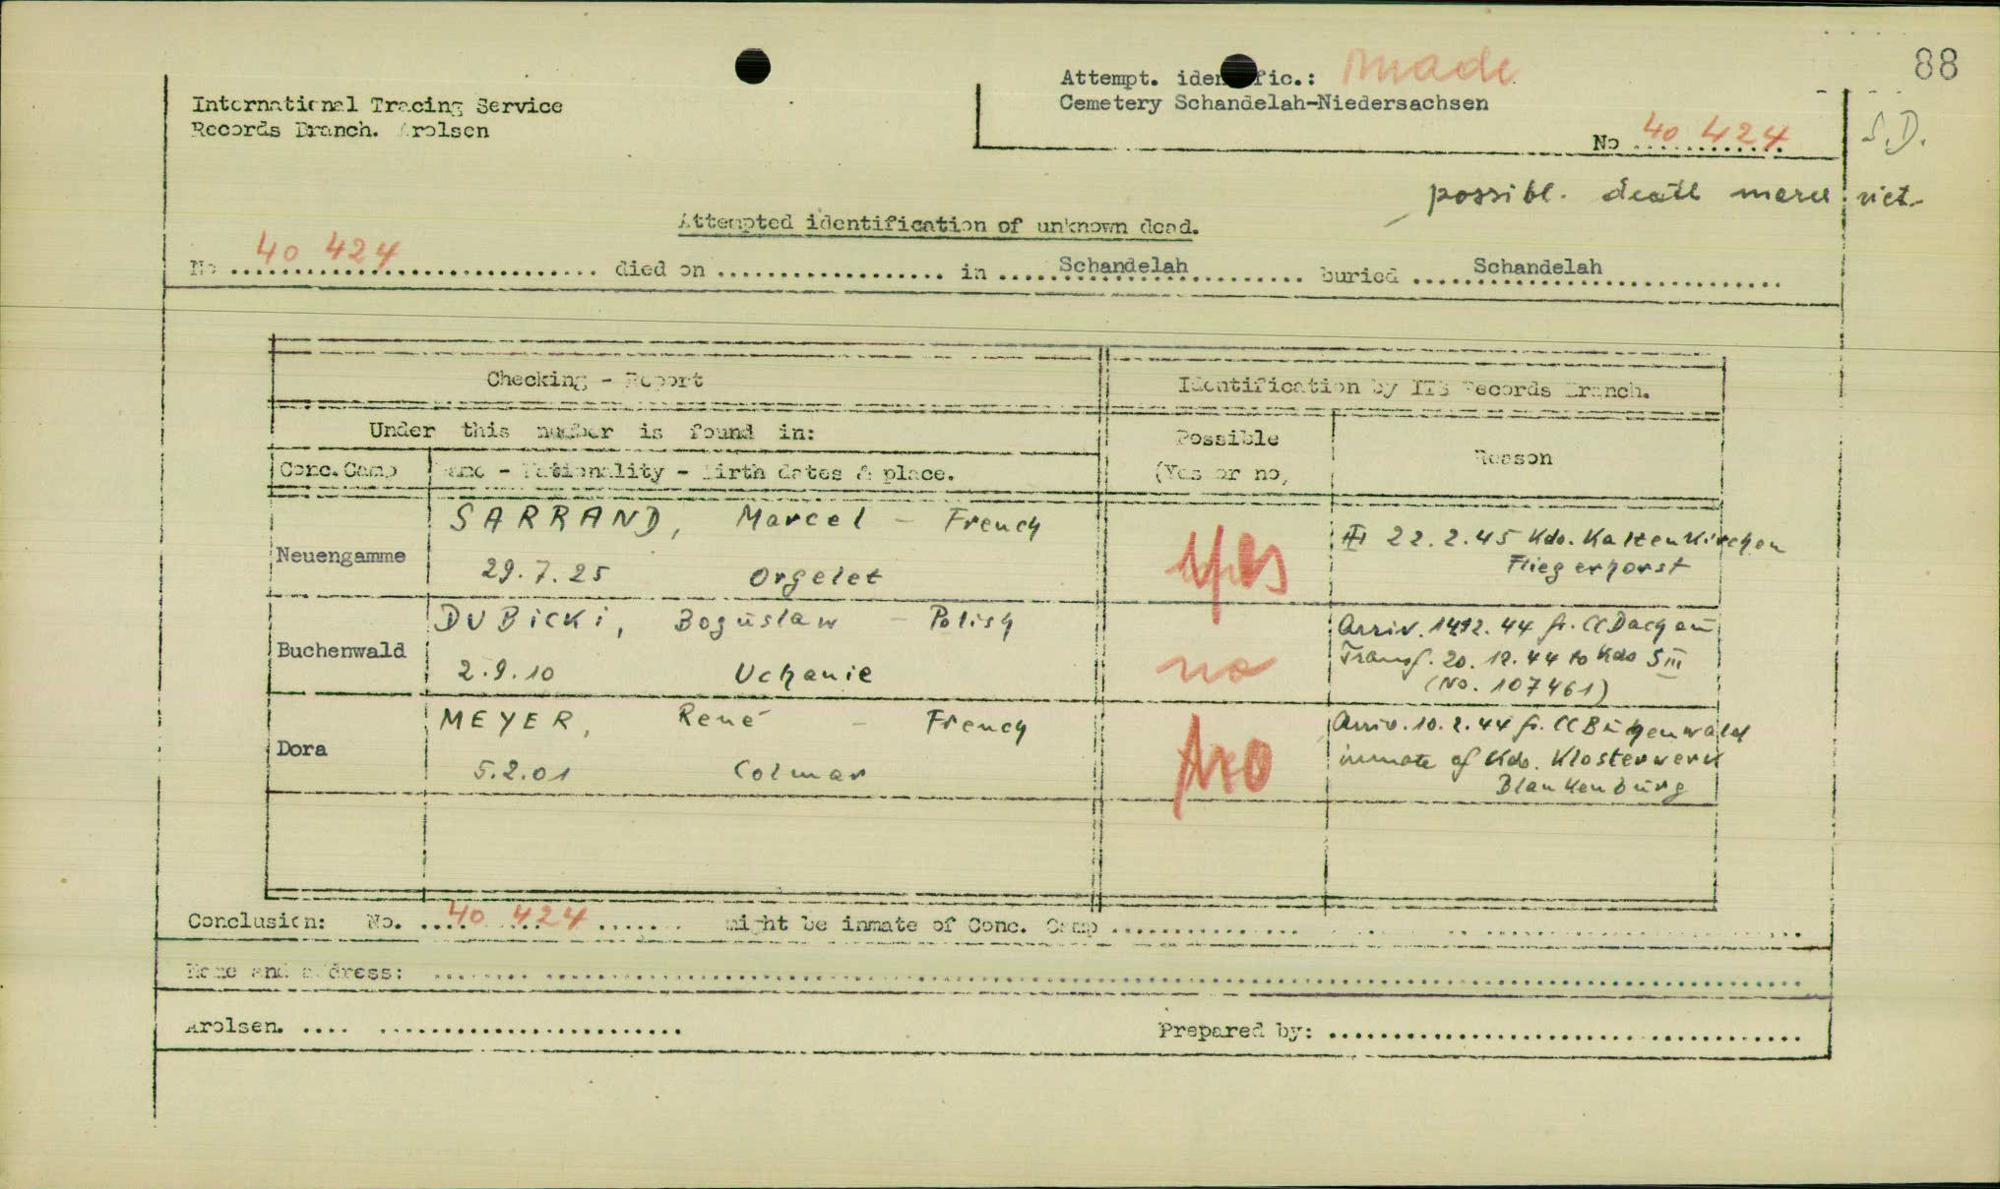 88
Attempt. identific.: made
International Tracing Service
Cemetery Schandelah-Niedersachsen
Records Branch. Arolsen
No 40 424
S.D.
possibl. death march vict.
Attempted identification of unknown dead.
No 40 424 died on in Schandelah buried Schandelah
Checking - Report
Identification by ITS Records Branch.
Under this number is found in:
Possible
(Yes or no,
Reason
Conc. Camp
Name - Nationality - Birth dates & place.
SARRAND, Marcel - French
Neuengamme
29.7.25 Orgelet
yes
22.2.45 Kdo. Kaltenkirchen
Fliegerhorst
DUBICKI, Boguslaw - Polish
Buchenwald
2.9.10 Uchanie
no
Arriv. 14.12.44 fr. CC Dachau
Transf. 20.12.44 to Kdo S III
(No. 107461)
MEYER, René - French
Dora
5.2.01 Colmar
no
Arriv. 10.2.44 fr. CC Buchenwald
inmate of Kdo. Klosterwerk
Blankenburg
Conclusion: No. 40 424 might be inmate of Conc. Camp
Name and address:
Arolsen.
Prepared by: